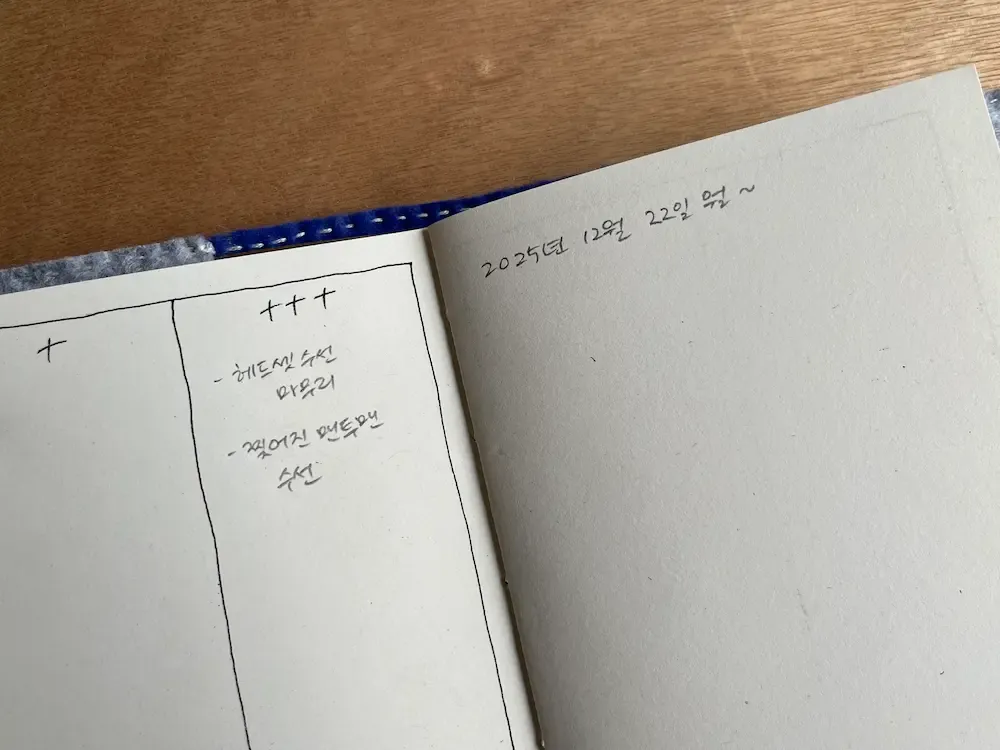 +
+++
- 헤드셋 수선
마무리
- 찢어진 맨투맨
수선
2025년 12월 22일 월 ~